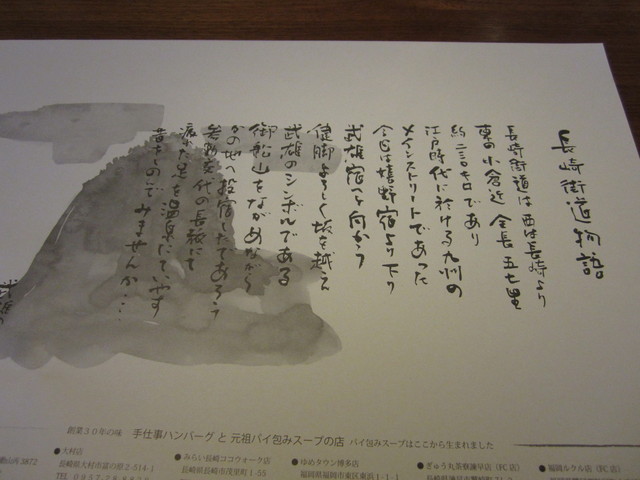 長崎街道物語
長崎街道は西は長崎より
東の小倉迄全長五七里
約二三〇キロであり
江戸時代に於ける九州の
メインストリートであった
今日は嬉野宿より下り
武雄宿へと向かう
健脚よろしく坂を越え
武雄のシンボルである
御船山をながめながら
かの地へ投宿したであろう
参勤交代の長旅にて
疲れた足を温泉にていやす
昔をしのんでみませんか…
武雄の
創業30年の味 手仕事ハンバーグ と 元祖パイ包みスープの店 パイ包みスープはここから生まれました
●大村店
●みらい長崎ココウォーク店
●ゆめタウン博多店
●ぎゅう丸茶飯諫早店 (FC店)
●福岡ルクル店 (FC店)
山内3872
長崎県大村市富の原2-514-1
長崎県長崎市茂里町1-55
福岡県福岡市東区東浜1-1-1
TEL